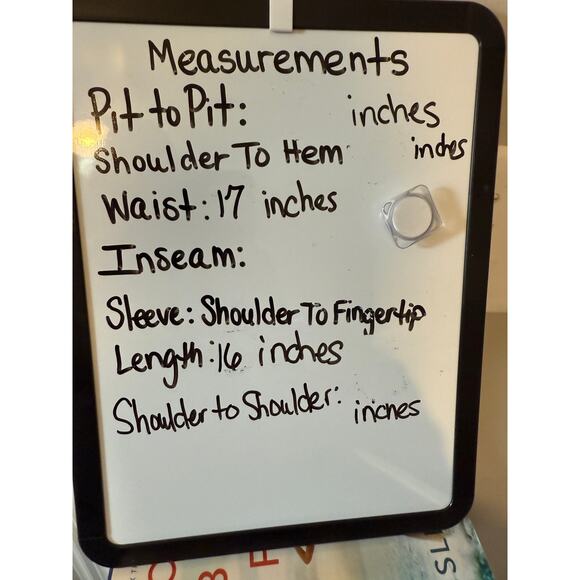 Measurements
Pit to Pit: inches
Shoulder To Hem inches
Waist: 17 inches
Inseam:
Sleeve: Shoulder To Fingertip
Length: 16 inches
Shoulder to Shoulder: inches